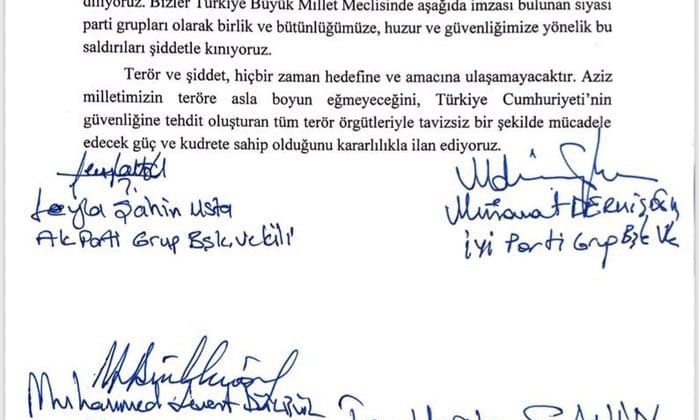 diliyoruz. Bizler Türkiye Büyük Millet Meclisinde aşağıda imzası bulunan siyasi
parti grupları olarak birlik ve bütünlüğümüze, huzur ve güvenliğimize yönelik bu
saldırıları şiddetle kınıyoruz.
Terör ve şiddet, hiçbir zaman hedefine ve amacına ulaşamayacaktır. Aziz
milletimizin teröre asla boyun eğmeyeceğini, Türkiye Cumhuriyeti'nin
güvenliğine tehdit oluşturan tüm terör örgütleriyle tavizsiz bir şekilde mücadele
edecek güç ve kudrete sahip olduğunu kararlılıkla ilan ediyoruz.
Leyla Şahin Usta
Ak Parti Grup Bşk. Vekili
İyi Parti Grup Bşk Vk
Muhammed Levent Bülbül